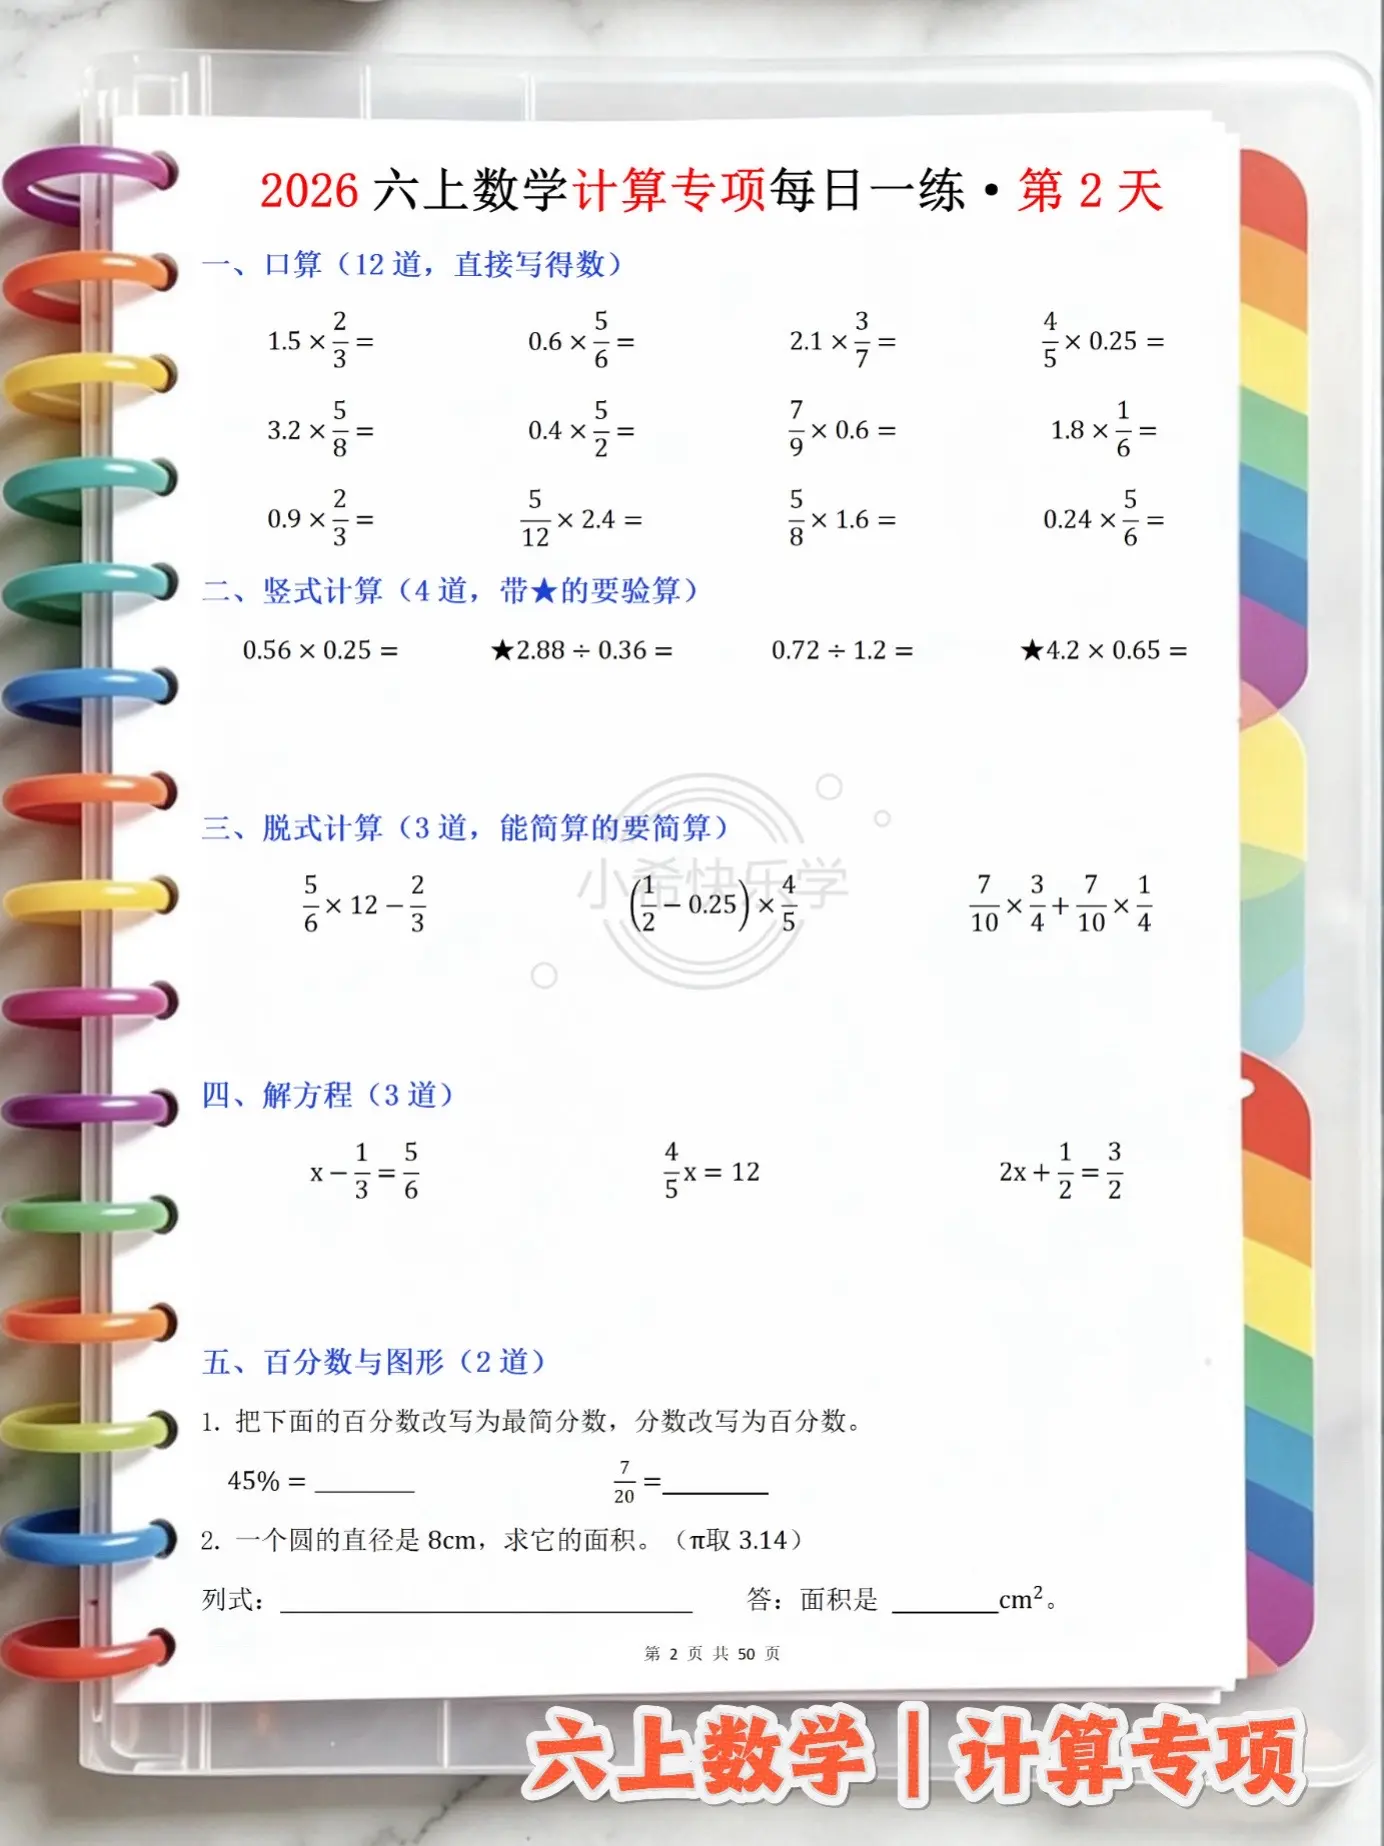 2026 六上数学计算专项每日一练·第 2 天
一、口算（12 道，直接写得数）
1.5 × 2/3 = 0.6 × 5/6 = 2.1 × 3/7 = 4/5 × 0.25 =
3.2 × 5/8 = 0.4 × 5/2 = 7/9 × 0.6 = 1.8 × 1/6 =
0.9 × 2/3 = 5/12 × 2.4 = 5/8 × 1.6 = 0.24 × 5/6 =
二、竖式计算（4 道，带★的要验算）
0.56 × 0.25 = ★2.88 ÷ 0.36 = 0.72 ÷ 1.2 = ★4.2 × 0.65 =
三、脱式计算（3 道，能简算的要简算）
小希快乐学
5/6 × 12 − 2/3 (1/2 − 0.25) × 4/5 7/10 × 3/4 + 7/10 × 1/4
四、解方程（3 道）
x − 1/3 = 5/6 4/5 x = 12 2x + 1/2 = 3/2
五、百分数与图形（2 道）
1. 把下面的百分数改写为最简分数，分数改写为百分数。
45% = ______ 7/20 = ______
2. 一个圆的直径是 8cm，求它的面积。（π取 3.14）
列式：______ 答：面积是 ______cm²。
第 2 页 共 50 页
六上数学｜计算专项